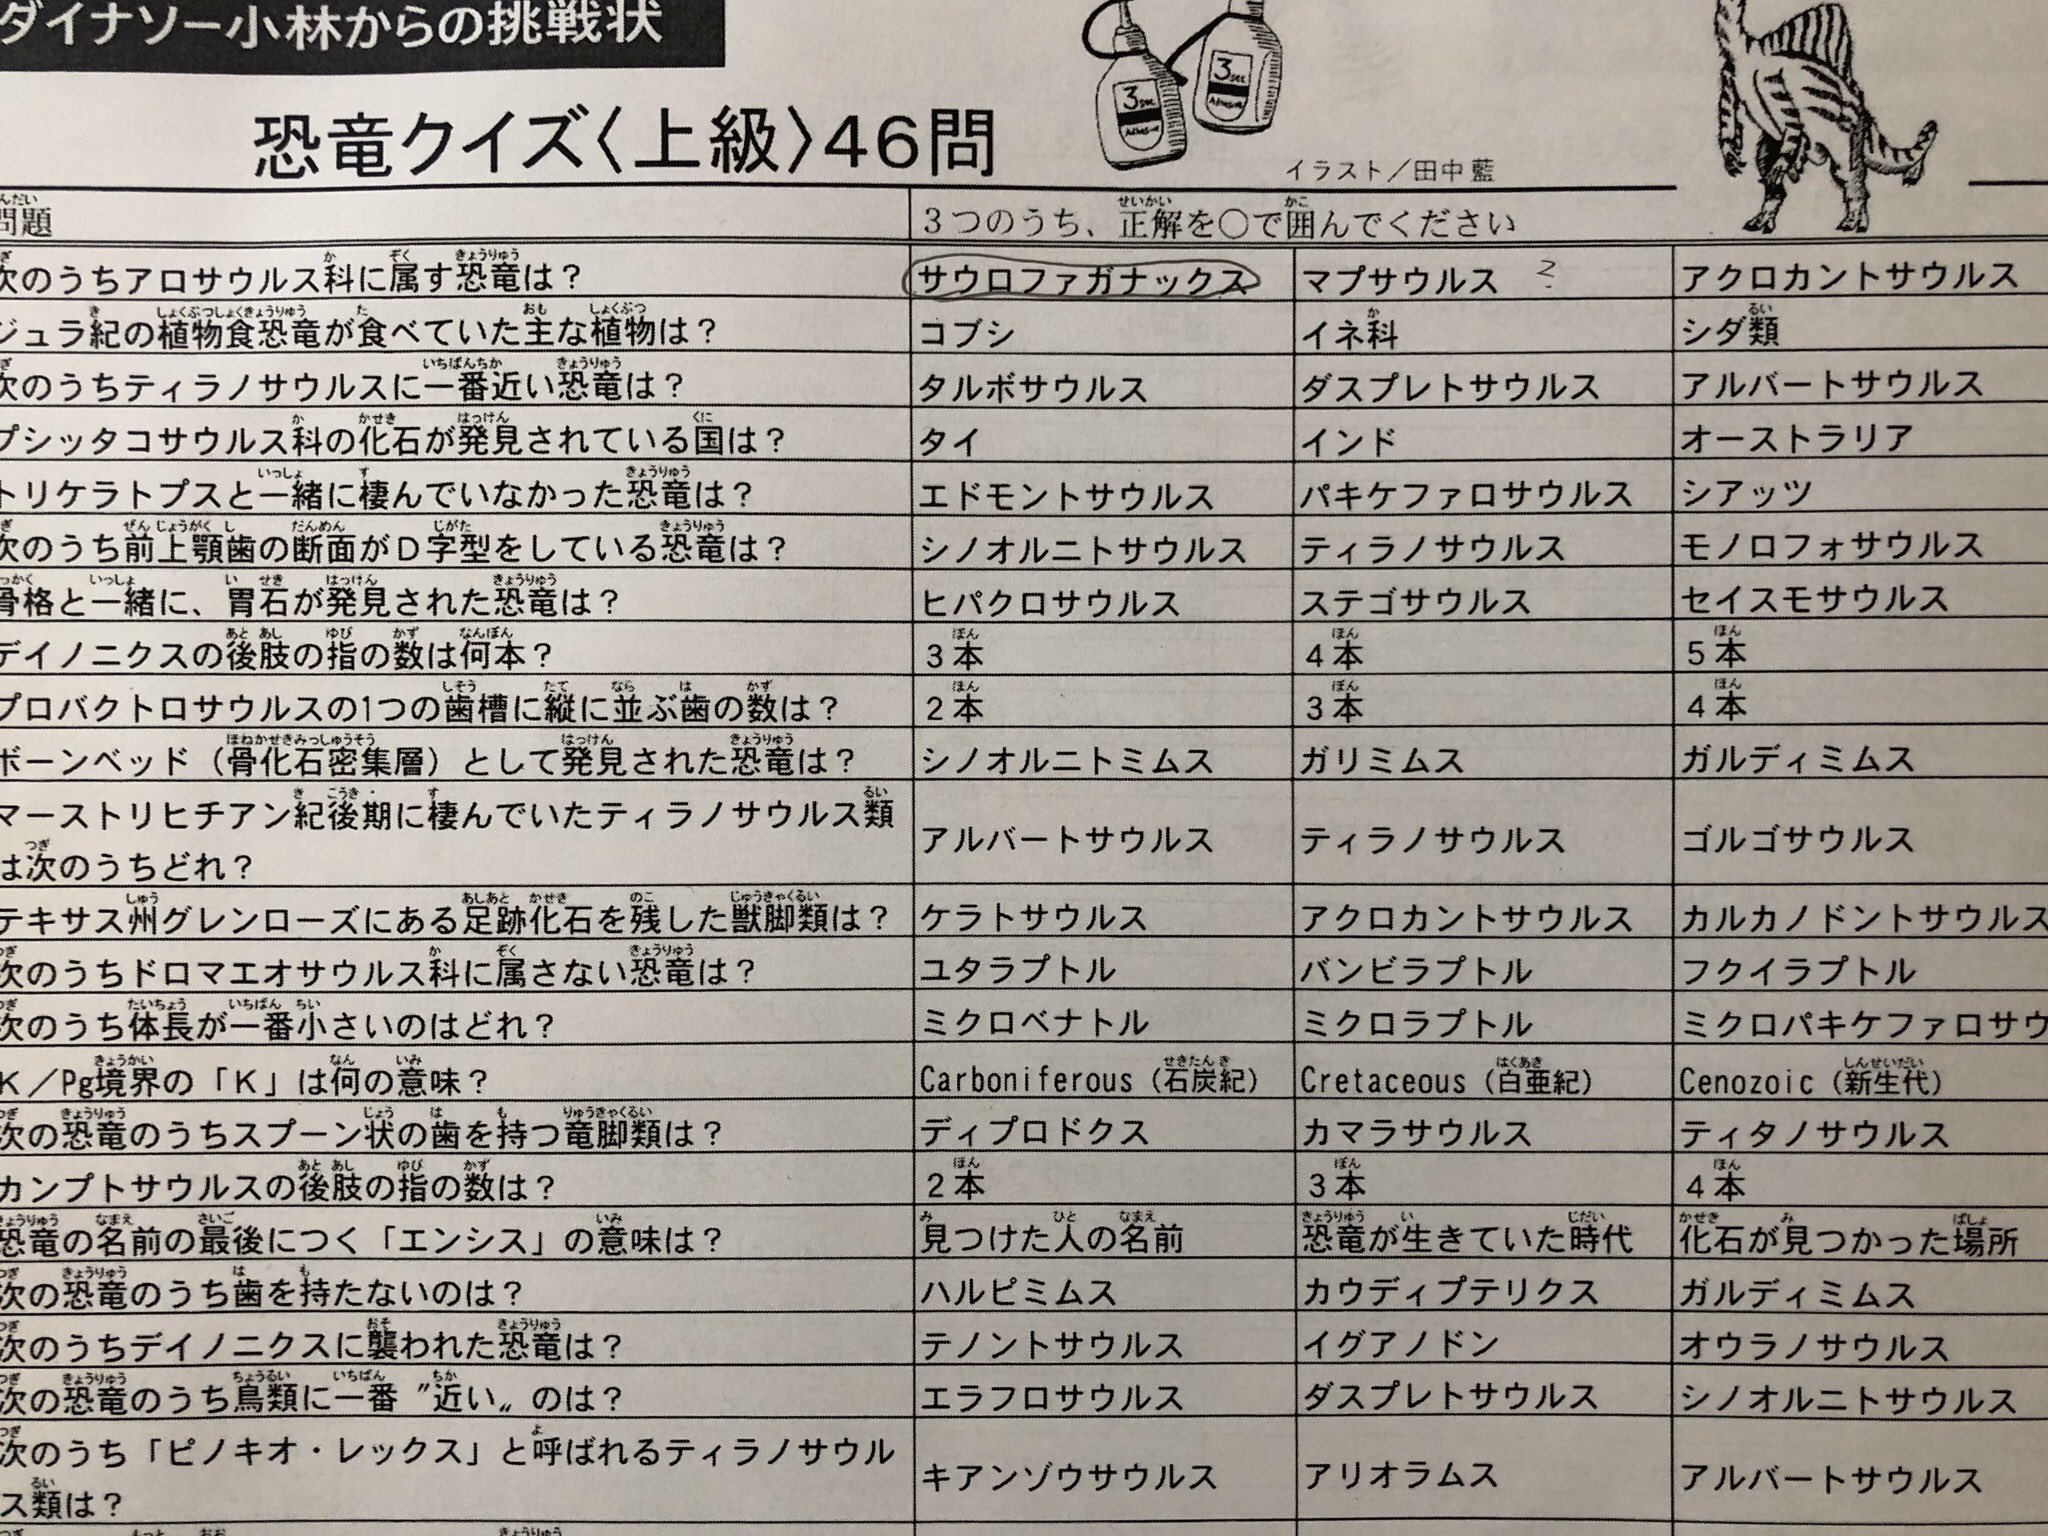 ダイナソー小林からの挑戦状
恐竜クイズ〈上級〉46問
3sec
3sec
イラスト／田中藍
問題 3つのうち、正解を○で囲んでください
次のうちアロサウルス科に属す恐竜は？ サウロファガナックス マプサウルス 2 アクロカントサウルス
ジュラ紀の植物食恐竜が食べていた主な植物は？ コブシ イネ科 シダ類
次のうちティラノサウルスに一番近い恐竜は？ タルボサウルス ダスプレトサウルス アルバートサウルス
プシッタコサウルス科の化石が発見されている国は？ タイ インド オーストラリア
トリケラトプスと一緒に棲んでいなかった恐竜は？ エドモントサウルス パキケファロサウルス シアッツ
次のうち前上顎歯の断面がD字型をしている恐竜は？ シノオルニトサウルス ティラノサウルス モノロフォサウルス
骨格と一緒に、胃石が発見された恐竜は？ ヒパクロサウルス ステゴサウルス セイスモサウルス
デイノニクスの後肢の指の数は何本？ 3本 4本 5本
プロバクトロサウルスの1つの歯槽に縦に並ぶ歯の数は？ 2本 3本 4本
ボーンベッド（骨化石密集層）として発見された恐竜は？ シノオルニトミムス ガリミムス ガルディミムス
マーストリヒチアン紀後期に棲んでいたティラノサウルス類
は次のうちどれ？ アルバートサウルス ティラノサウルス ゴルゴサウルス
テキサス州グレンローズにある足跡化石を残した獣脚類は？ ケラトサウルス アクロカントサウルス カルカノドントサウルス
次のうちドロマエオサウルス科に属さない恐竜は？ ユタラプトル バンビラプトル フクイラプトル
次のうち体長が一番小さいのはどれ？ ミクロベナトル ミクロラプトル ミクロパキケファロサウ
K／Pg境界の「K」は何の意味？ Carboniferous（石炭紀） Cretaceous（白亜紀） Cenozoic（新生代）
次の恐竜のうちスプーン状の歯を持つ竜脚類は？ ディプロドクス カマラサウルス ティタノサウルス
カンプトサウルスの後肢の指の数は？ 2本 3本 4本
恐竜の名前の最後につく「エンシス」の意味は？ 見つけた人の名前 恐竜が生きていた時代 化石が見つかった場所
次の恐竜のうち歯を持たないのは？ ハルピミムス カウディプテリクス ガルディミムス
次のうちデイノニクスに襲われた恐竜は？ テノントサウルス イグアノドン オウラノサウルス
次の恐竜のうち鳥類に一番〝近い〟のは？ エラフロサウルス ダスプレトサウルス シノオルニトサウルス
次のうち「ピノキオ・レックス」と呼ばれるティラノサウル
ス類は？ キアンゾウサウルス アリオラムス アルバートサウルス